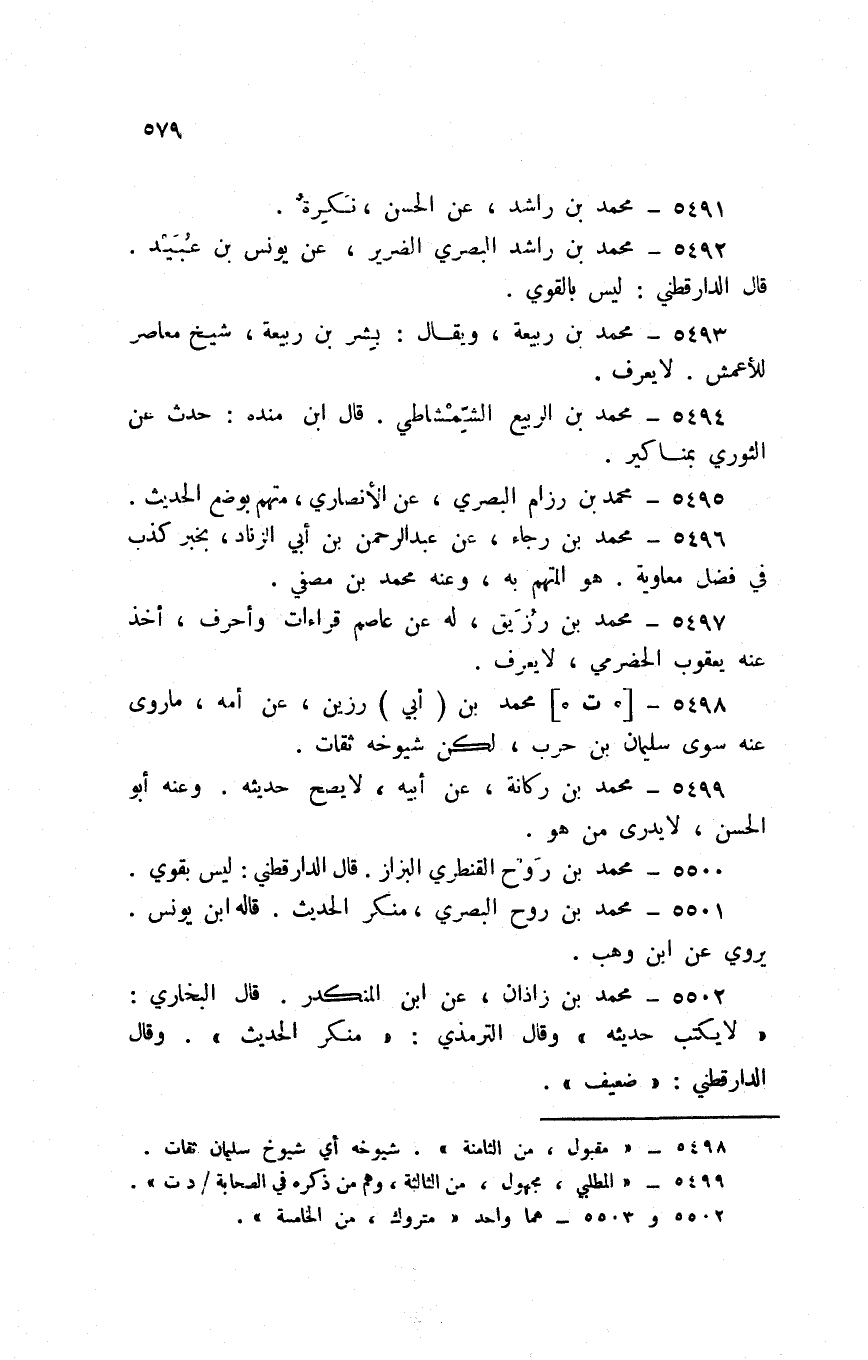 ٥٧٩
٥٤٩١ – محمد بن راشد ، عن الحسن ، نَكِرةٌ .
٥٤٩٢ – محمد بن راشد البصري الضرير ، عن يونس بن عُبَيْد .
قال الدارقطني : ليس بالقوي .
٥٤٩٣ – محمد بن ربيعة ، ويقال : بِشر بن ربيعة ، شيخ معاصر
للأعمش . لايعرف .
٥٤٩٤ – محمد بن الربيع الشِّمْشاطي . قال ابن منده : حدث عن
الثوري بمناكير .
٥٤٩٥ – محمد بن رزام البصري ، عن الأنصاري ، متهم بوضع الحديث .
٥٤٩٦ – محمد بن رجاء ، عن عبدالرحمن بن أبي الزناد ، بخبر كذب
في فضل معاوية . هو المتهم به ، وعنه محمد بن مصفي .
٥٤٩٧ – محمد بن رُزَيق ، له عن عاصم قراءات وأحرف ، أخذ
عنه يعقوب الحضرمي ، لايعرف .
٥٤٩٨ – [ ٥ ت ٥ ] محمد بن ( أبي ) رزين ، عن أمه ، ماروى
عنه سوى سليمان بن حرب ، لكن شيوخه ثقات .
٥٤٩٩ – محمد بن ركانة ، عن أبيه ، لايصح حديثه . وعنه أبو
الحسن ، لايدرى من هو .
٥٥٠٠ – محمد بن رَوْح القنطري البزاز . قال الدارقطني : ليس بقوي .
٥٥٠١ – محمد بن روح البصري ، منكر الحديث . قاله ابن يونس .
يروي عن ابن وهب .
٥٥٠٢ – محمد بن زاذان ، عن ابن المنكدر . قال البخاري :
« لايكتب حديثه » وقال الترمذي : « منكر الحديث » . وقال
الدارقطني : « ضعيف » .
٥٤٩٨ – « مقبول ، من الثامنة » . شيوخه أي شيوخ سليمان ثقات .
٥٤٩٩ – « المطلبي ، مجهول ، من الثالثة ، وهم من ذكره في الصحابة / د ت » .
٥٥٠٢ و ٥٥٠٣ – هما واحد « متروك ، من الخامسة » .